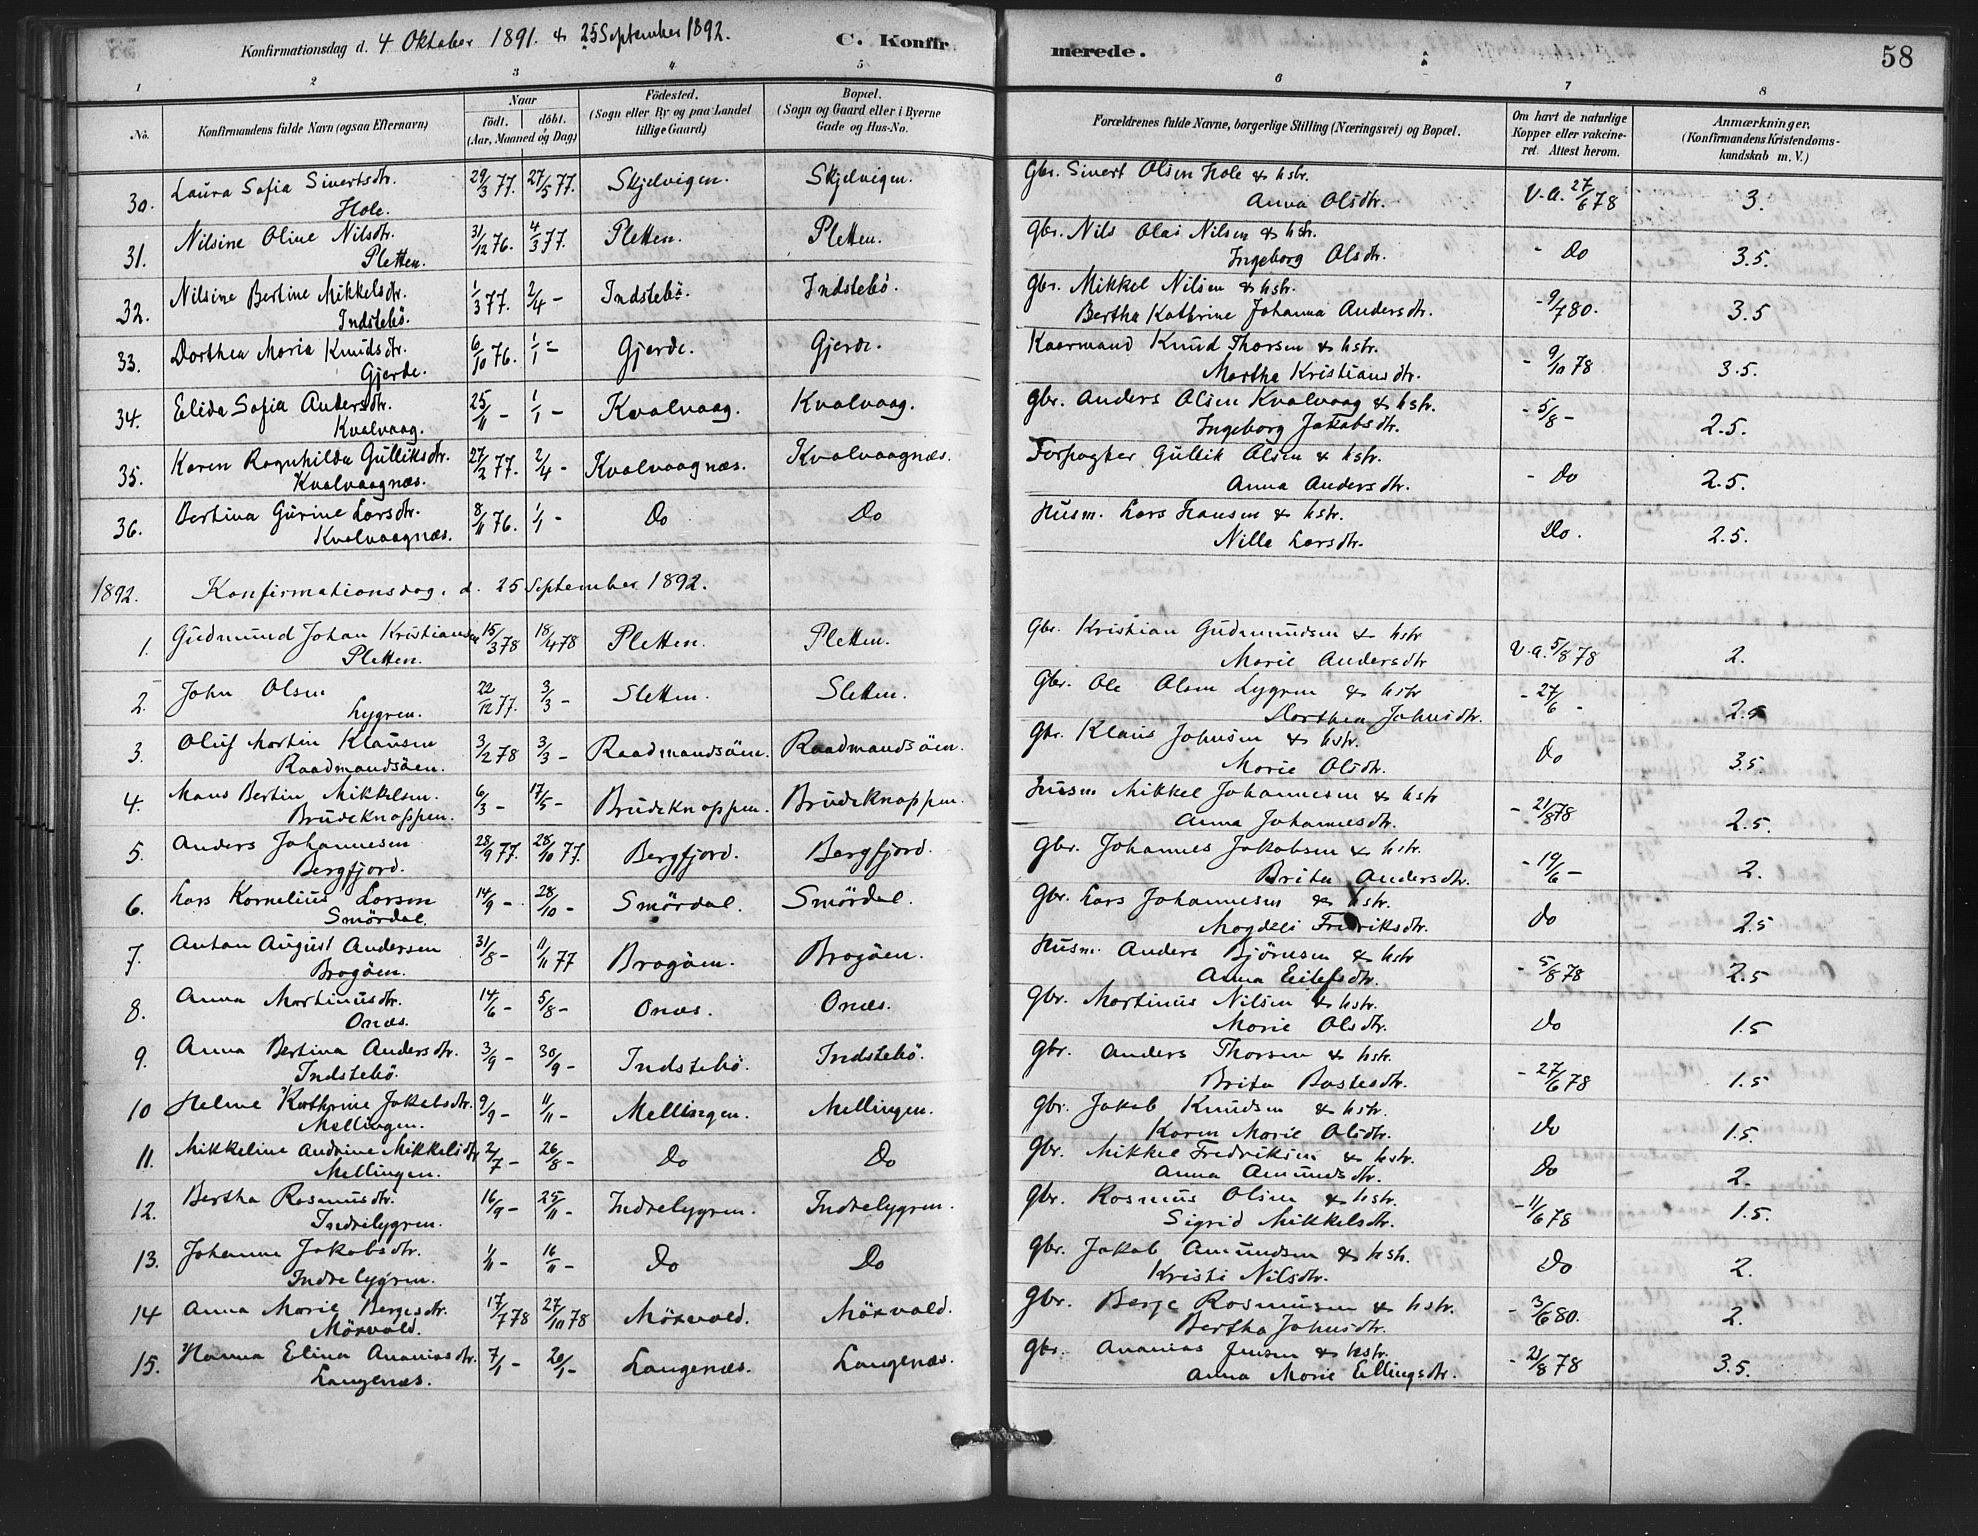 Konfirmationsdag d. 4 Oktober 1891. & 25 September 1892.
C. Konfirmerede.
58
1 2 3 4 5 6 7 8
No.
Konfirmandens fulde Navn (ogsaa Efternavn)
Naar
født. døbt.
(Aar, Maaned og Dag)
Fødested.
(Sogn eller By og paa Landet
tillige Gaard)
Bopæl.
(Sogn og Gaard eller i Byerne
Gade og Hus-No.
Forældrenes fulde Navne, borgerlige Stilling (Næringsvei) og Bopæl.
Om havt de naturlige
Kopper eller vakcine-
ret. Attest herom.
Anmærkninger.
(Konfirmandens Kristendoms-
kundskab m. V.)
30. Laura Sofia Sivertsdtr. 29/3 77. 27/5 77. Skjelvigen. Skjelvigen. Gbr. Sivert Olsen Hole & hstr. V.a. 27/6 78 3.
Hole. Anna Olsdtr.
31. Nilsine Oline Nilsdtr. 31/12 76. 4/3 77. Pletten. Pletten. Gbr. Nils Olai Nilsen & hstr. - Do 3.5.
Pletten. Ingeborg Olsdtr.
32. Nilsine Bertine Mikkelsdtr. 1/3 77. 2/4 - Indstebö. Indstebö. Gbr. Mikkel Nilsen & hstr. - 9/7 80. 3.5
Indstebö. Bertha Kathrine Johanna Andersdtr.
33. Dorthea Maria Knudsdtr. 6/10 76. 1/1 - Gjerde. Gjerde. Kaarmand Knud Thorsen & hstr. - 9/10 78 3.5.
Gjerde. Martha Kristiansdtr.
34. Elida Sofia Andersdtr. 25/11 - 1/1 - Kvalvaag. Kvalvaag. Gbr. Anders Olsen Kvalvaag & hstr. - 5/8 - 2.5.
Kvalvaag. Ingeborg Jakobsdtr.
35. Karen Ragnhilda Gulliksdtr. 27/2 77. 2/4 - Kvalvaagnæs. Kvalvaagnæs. Forpagter Gullik Olsen & hstr. - Do 2.5.
Kvalvaagnæs. Anna Andersdtr.
36. Bertina Gurine Larsdtr. 8/11 76. 1/1 - Do Do Husm. Lars Hansen & hstr. Do. 2.5.
Kvalvaagnæs. Nille Larsdtr.
1892. Konfirmationsdag. d. 25 September 1892.
1. Gudmund Johan Kristiansen 15/3 78 18/4 78 Pletten. Pletten. Gbr. Kristian Gudmundsen & hstr V.a. 5/8 78 2.
Pletten. Marie Andersdtr
2. John Olsen 22/12 77. 3/3 - Sletten. Sletten. Gbr. Ole Olsen Lygren & hstr - 27/6 - 2.5
Lygren. Dorthea Johnsdtr.
3. Oluf Martin Klausen 3/2 78 3/3 - Raadmandsöen. Raadmandsöen. Gbr. Klaus Johnsen & hstr. Do 3.5.
Raadmandsöen. Marie Olsdtr.
4. Mons Bertin Mikkelsen. 6/3 - 17/5 - Brudeknappen. Brudeknappen. Husm Mikkel Johannesen & hstr - 21/8 78 2.5.
Brudeknappen. Anna Johannesdtr.
5. Anders Johannesen 28/9 77. 28/10 77. Bergfjord. Bergfjord. Gbr. Johannes Jakobsen & hstr. - 19/6 - 2.
Bergfjord. Brita Andersdtr.
6. Lars Kornelius Larsen 14/9 - 28/10 - Smördal. Smördal. Gbr. Lars Johannesen & hstr. Do 2.5
Smördal. Magdeli Fredriksdtr.
7. Anton August Andersen 31/8 - 11/11 77 Bragöen. Bragöen. Husm. Anders Björnsen & hstr - 5/8 78 2.5
Bragöen. Anna Eilefsdtr.
8. Anna Martinusdtr. 14/6 - 5/8 - Onæs. Onæs. Gbr. Martinus Nilsen & hstr. Do 1.5
Onæs. Marie Olsdtr.
9. Anna Bertina Andersdtr. 3/9 - 30/9 - Indstebö. Indstebö. Gbr. Anders Thorsen & hstr. - 27/6 78 1.5
Indstebö. Brita Bastesdtr.
10 Helene Kathrine Jakobsdtr. 9/9 - 11/11 - Mellingen. Mellingen. Gbr. Jakob Knudsen & hstr. Do 1.5.
Mellingen. Karen Marie Olsdtr.
11. Mikkeline Andrine Mikkelsdtr 2/7 - 26/8 - Do Do Gbr. Mikkel Fredriksen & hstr. Do 2.
Mellingen. Anna Amundsdtr.
12. Bertha Rasmusdtr. 16/9 - 25/11 - Indrelygren. Indrelygren. Gbr. Rasmus Olsen & hstr. - 11/6 78 1.5.
Indrelygren. Sigrid Mikkelsdtr.
13. Johanna Jakobsdtr. 1/11 - 16/11 - Do Do Gbr. Jakob Amundsen & hstr. Do 2.
Indrelygren. Kristi Nilsdtr.
14 Anna Marie Bergesdtr. 17/7 78 27/10 78 Mörvold. Mörvold. Gbr. Berge Rasmusen & hstr. - 3/6 80. 2.
Mörvold. Bertha Johnsdtr.
15. Hanna Elina Ananiasdtr. 7/1 - 20/1 - Langenæs. Langenæs. Gbr. Ananias Jensen & hstr. - 21/8 78 3.5.
Langenæs. Anna Marie Ellingsdtr.